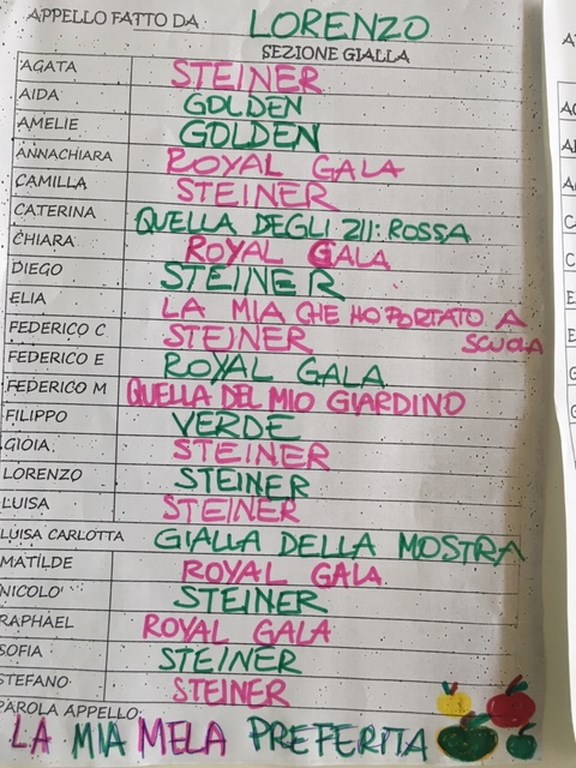 APPELLO FATTO DA LORENZO
SEZIONE GIALLA
AGATA STEINER
AIDA GOLDEN
AMELIE GOLDEN
ANNACHIARA ROYAL GALA
CAMILLA STEINER
CATERINA QUELLA DEGLI ZII: ROSSA
CHIARA ROYAL GALA
DIEGO STEINER
ELIA LA MIA CHE HO PORTATO A
SCUOLA
FEDERICO C STEINER
FEDERICO E ROYAL GALA
FEDERICO M QUELLA DEL MIO GIARDINO
FILIPPO VERDE
GIOIA STEINER
LORENZO STEINER
LUISA STEINER
LUISA CARLOTTA GIALLA DELLA MOSTRA
MATILDE ROYAL GALA
NICOLO' STEINER
RAPHAEL ROYAL GALA
SOFIA STEINER
STEFANO STEINER
PAROLA APPELLO:
LA MIA MELA PREFERITA